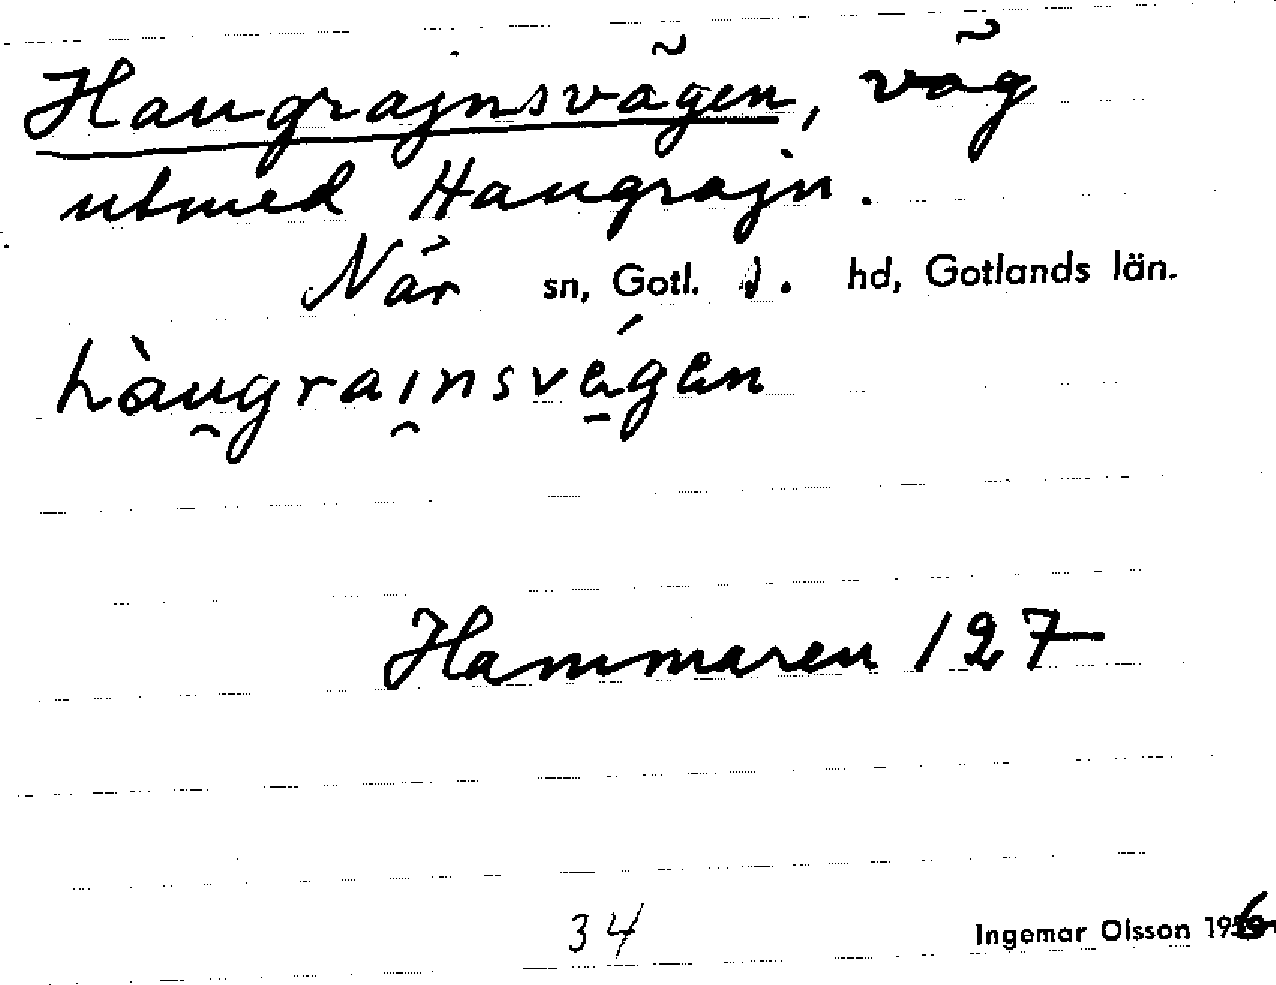 Haugrajnsvägen, väg
utmed Haugrajn.
När sn, Gotl. s. hd, Gotlands län.
hàu̯grai̯nsvé̱gen
Hammaren 127
34
Ingemar Olsson 196